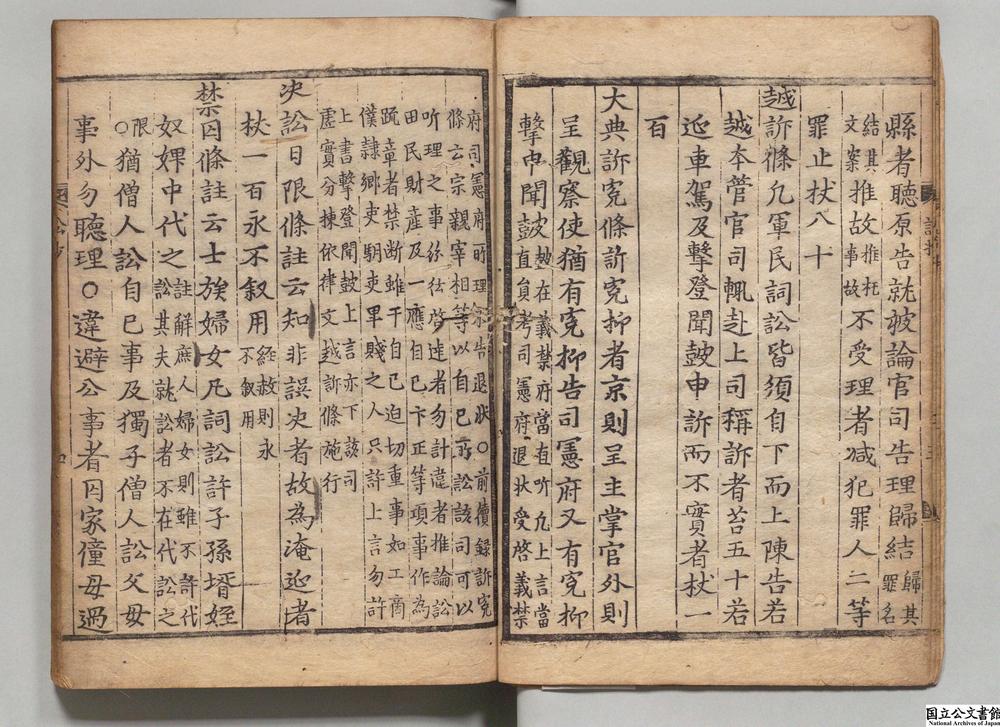 縣者聽原告就被論官司告理歸結歸其罪名
結其文案推故推托事故不受理者减犯罪人二等
罪止杖八十
越訴條凡軍民詞訟皆須自下而上陳告若
越本管官司輒赴上司稱訴者笞五十若
迎車駕及擊登聞鼓申訴而不實者杖一
百
大典訴寃條訴寃抑者京則呈主掌官外則
呈觀察使猶有寃抑告司憲府又有寃抑
擊申聞鼓鼓在義禁府當直聽凡上言當直員考司憲府退状受啓義禁
府司憲府所理告退状○前續録訴寃
條云宗親宰相等以自己所訟該司可以
听理之事紛紜啓達者勿計違者推論訟
田民財産及一應自己卞正等項事作為
䟽章者禁断雖干自己迫切重事如工商
僕隷鄉吏驛吏卑賤之人只許上言勿許
上書擊登聞鼓上言亦下該司
虛實分揀依律文越訴條施行
决訟日限條註云知非誤决者故為淹延者
杖一百永不叙用經赦則永不叙用
禁囚條註云士族婦女凡詞訟許子孫壻姪
奴婢中代之註解庶人婦女則雖不許代訟其夫就訟者不在代訟之
限○猶僧人訟自己事及獨子僧人訟父母
事外勿聽理○違避公事者囚家僮毋過
国立公文書館
National Archives of Japan